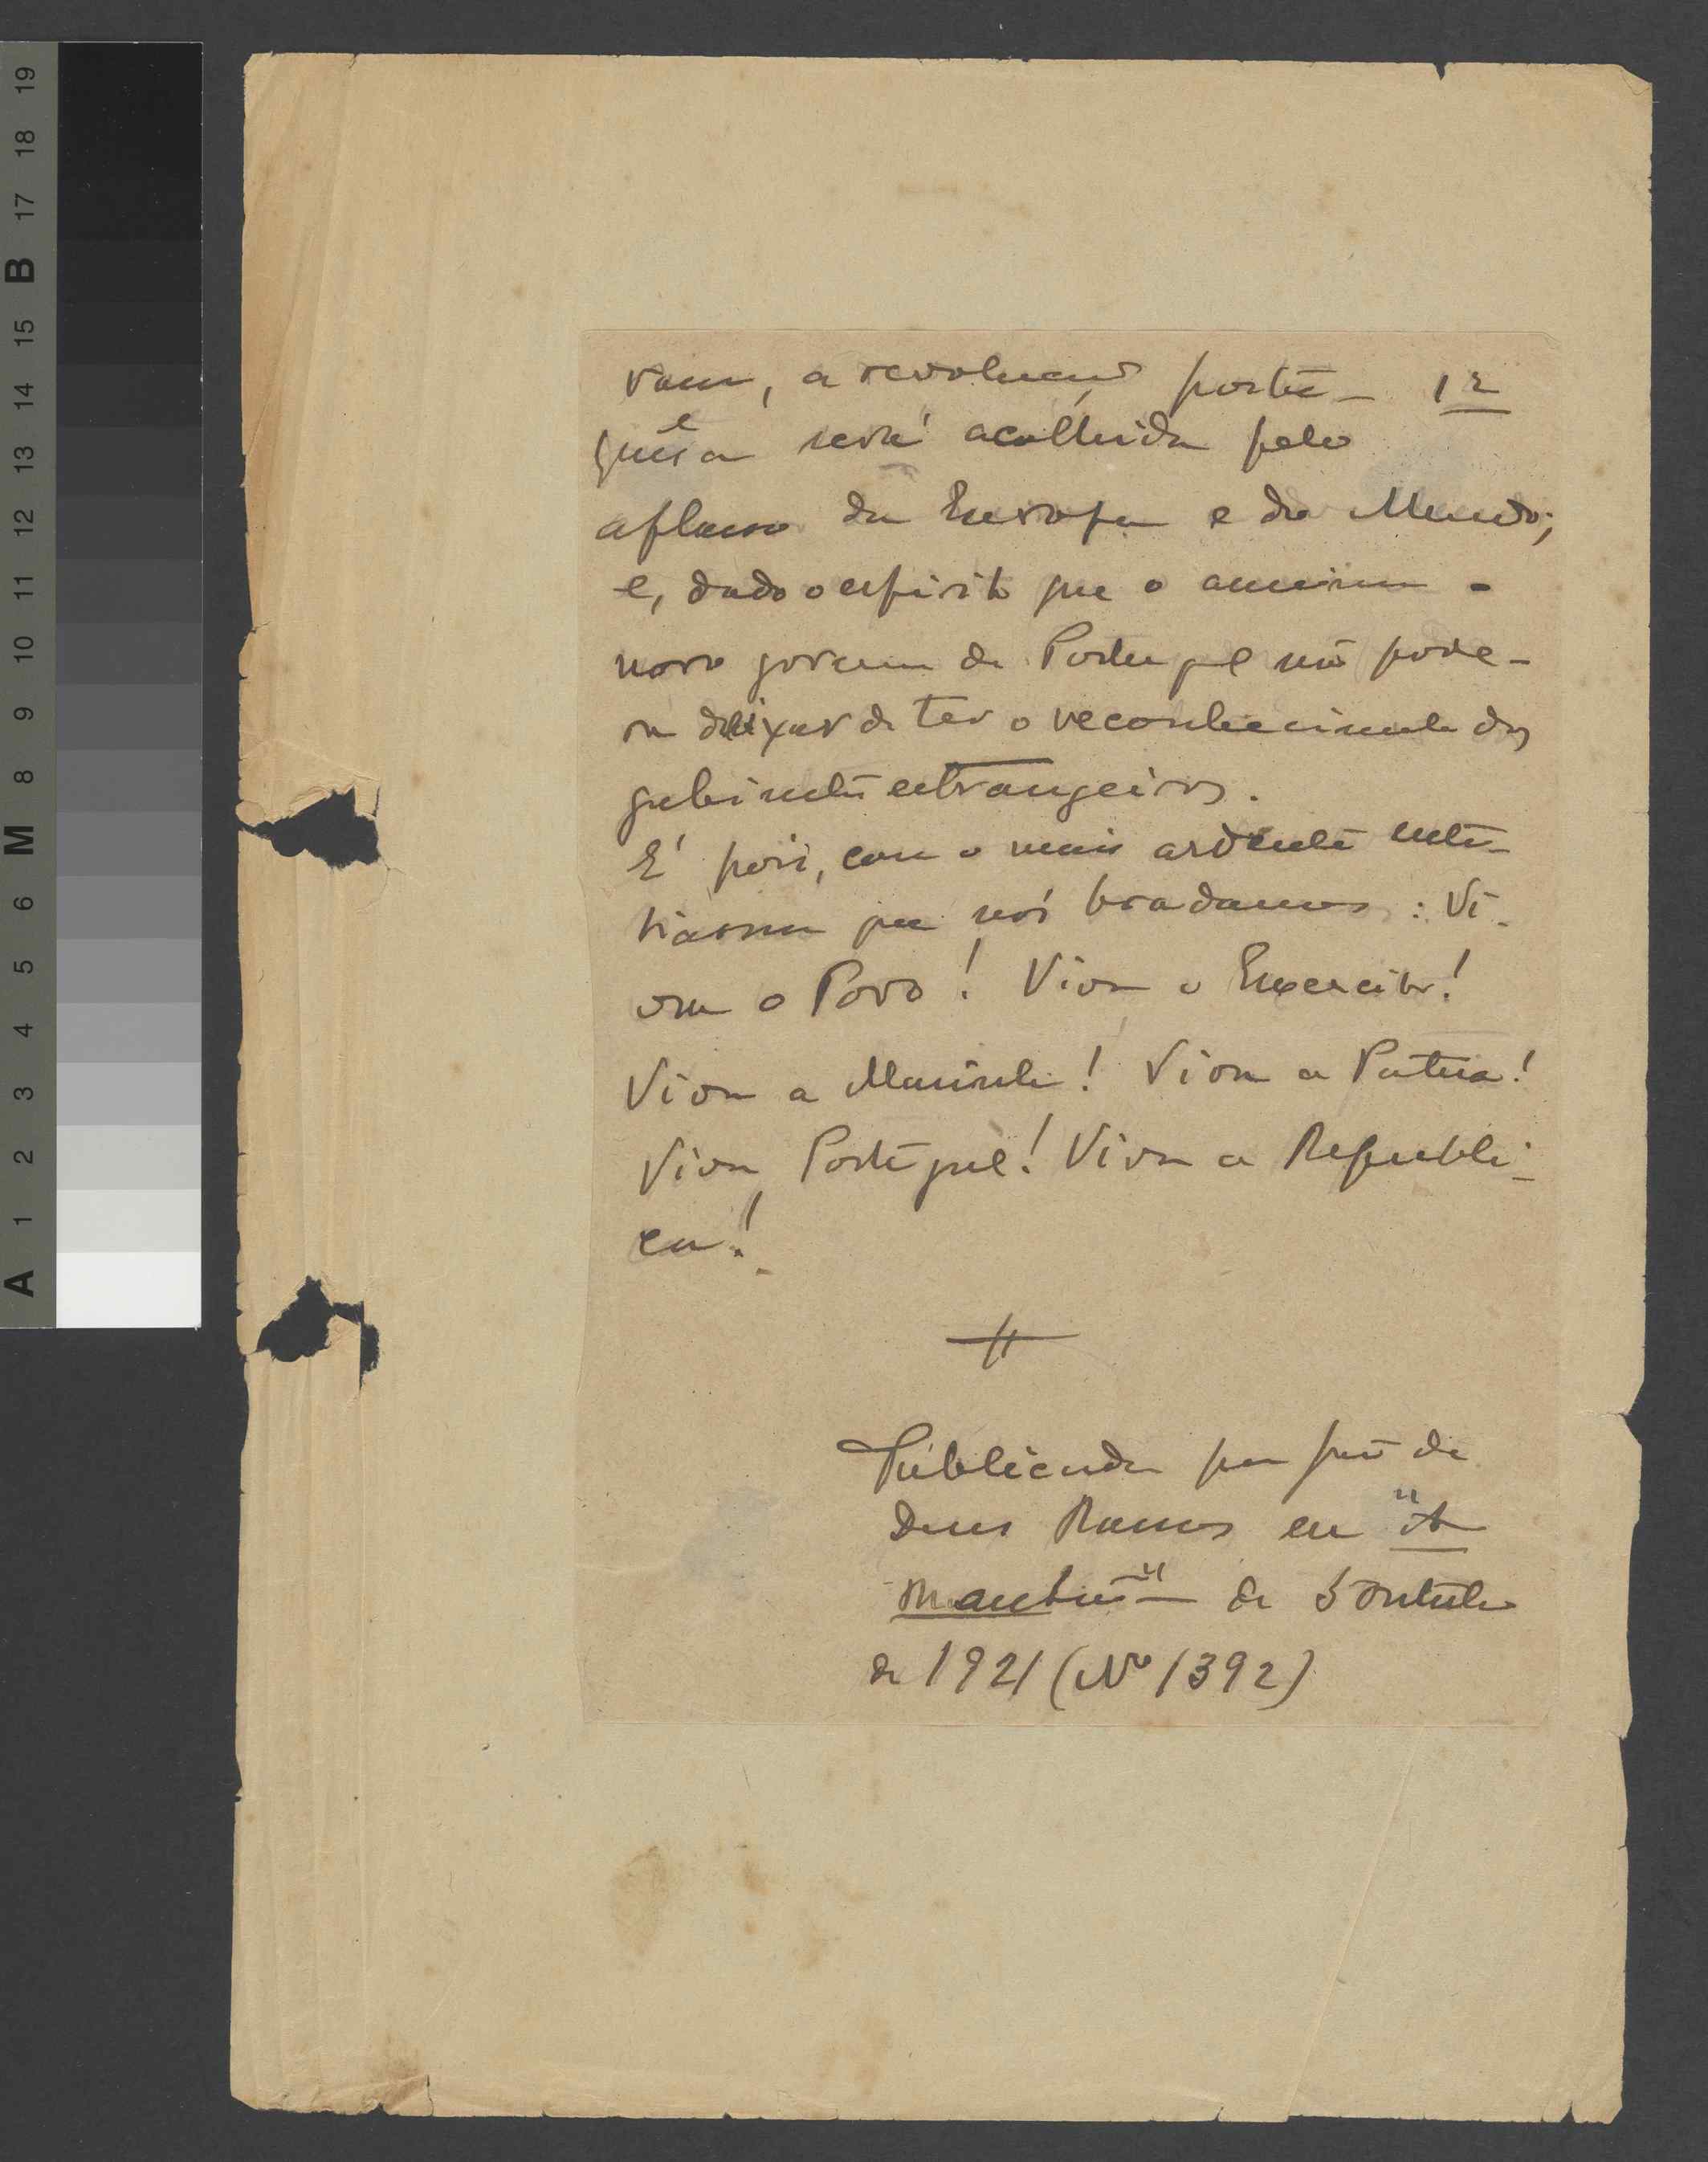 vam, a revolução portu- 12
guêsa será acolhida pelo
aplauso da Europa e do Mundo;
e, dado o espirito que o anima o
novo governo de Portugal não pode-
rá deixar de ter o reconhecimento dos
gabinetes estrangeiros.
É pois, com o mais ardente entu-
siasmo que nós bradamos: Vi-
va o Povo! Viva o Exercito!
Viva a Marinha! Viva a Patria!
Viva Portugal! Viva a Republi-
ca!
Publicada por João de
Deus Ramos em "A
Manhã" de 5 Outubro
de 1921 (Nº 1392)
B 19 18 17 16 15 14 13 12 11 10 9 8 M 7 6 5 4 3 2 1 A